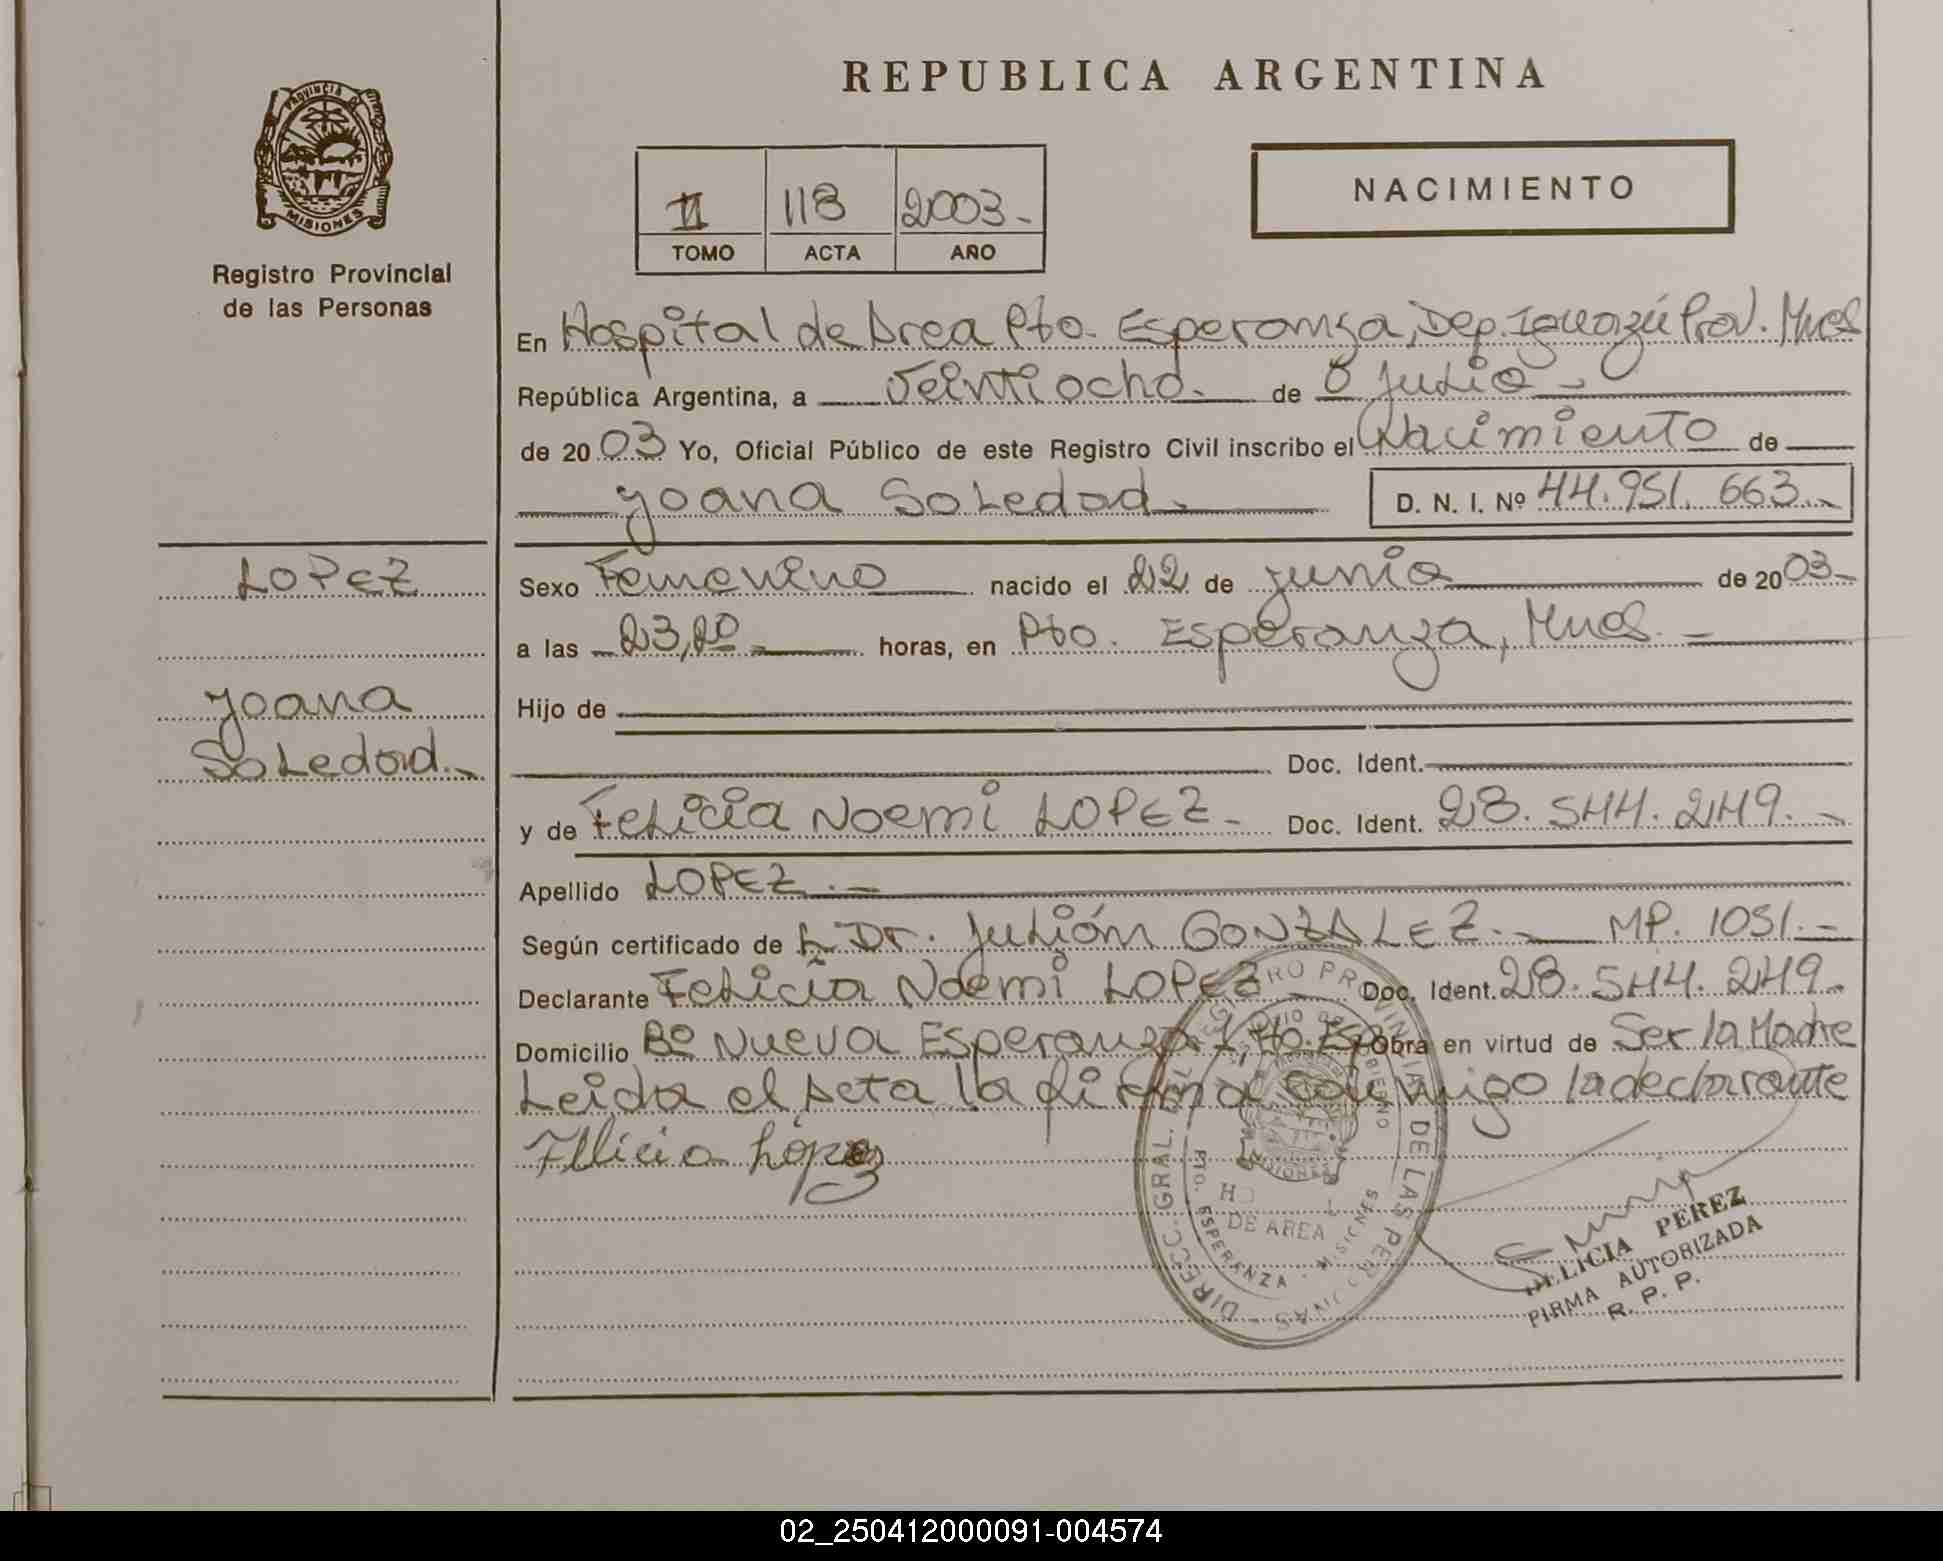 REPUBLICA ARGENTINA
PROVINCIA DE
MISIONES
Registro Provincial
de las Personas
II 118 2003-
TOMO ACTA AÑO
NACIMIENTO
En Hospital de Area Pto. Esperanza, Dep. Iguazú Prov. Mnes
República Argentina, a Veintiocho. de Julio -
de 20 03 Yo, Oficial Público de este Registro Civil inscribo el Nacimiento de
Joana Soledad - D. N. I. Nº 44.951.663.-
LOPEZ
Sexo Femenino nacido el 22 de junio de 20 03-
a las 23,20 - horas, en Pto. Esperanza, Mnes. -
Joana
Soledad.-
Hijo de
Doc. Ident.
y de Felicia Noemi LOPEZ - Doc. Ident. 28.544.249.-
Apellido LOPEZ.-
Según certificado de Dr. Julián GONZALEZ.- MP. 1051.-
Declarante Felicia Noemi LOPEZ Doc. Ident. 28.544.249-
Domicilio Bº Nueva Esperanza 1, Pto. Esp. Obra en virtud de Ser la Madre
Leida el Acta la firma conmigo la declarante
Felicia López
DIRECC. GRAL. DEL REGISTRO PROVINCIAL DE LAS PERSONAS
DE AREA
PTO. ESPERANZA - MISIONES
DELICIA PEREZ
FIRMA AUTORIZADA
R. P. P.
02_250412000091-004574